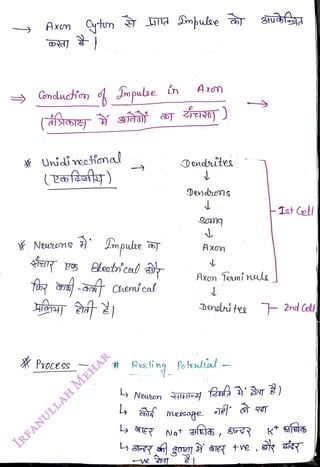 → Axon Cyton से प्राप्त Impulse को अपकेन्द्रित
करता है।
⇒ Conduction of Impulse in Axon →
(तंत्रिकाक्ष में आवेगों का संचरण)
* Unidirectional →
(एकदिशीय)
Dendrites
↓
Dendrons
↓
Soma
↓
Axon
↓
Axon Terminals
↓
Dendrites
Ist Cell
2nd Cell
* Neurons में Impulse का
संचार एक Electrical और
फिर कभी-कभी Chemical
प्रक्रिया होती है।
* Process — # Resting Potential —
↳ Neuron सामान्य स्थिति में होता है।
↳ कोई message नहीं ले रहा
↳ बाहर Na+ अधिक, अन्दर K+ अधिक
↳ अन्दर की तुलना में बाहर +ve, और अंदर
-ve होता है।
IRFANULLAH MEHAR